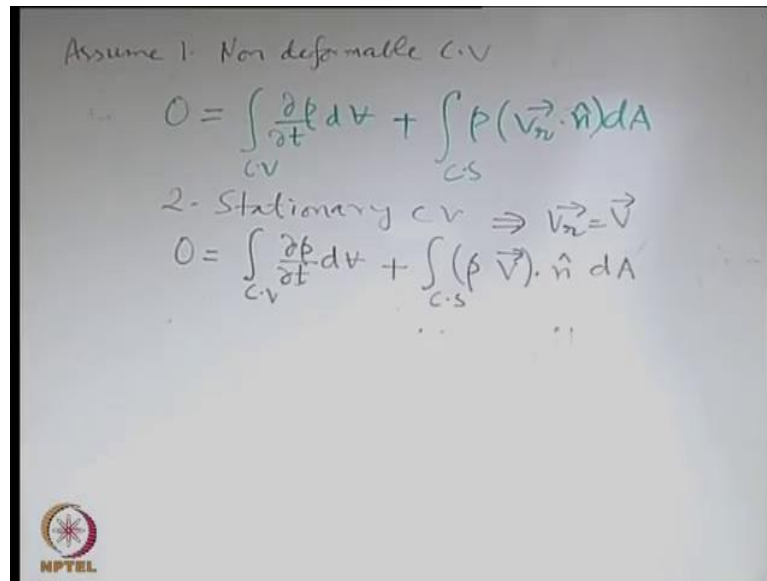 Assume 1. Non deformable C.V
0 = ∫_{C.V} ∂ρ/∂t dV + ∫_{C.S} ρ(V⃗r · n̂)dA
2. Stationary CV ⇒ V⃗r = V⃗
0 = ∫_{C.V} ∂ρ/∂t dV + ∫_{C.S} (ρ V⃗) · n̂ dA
NPTEL